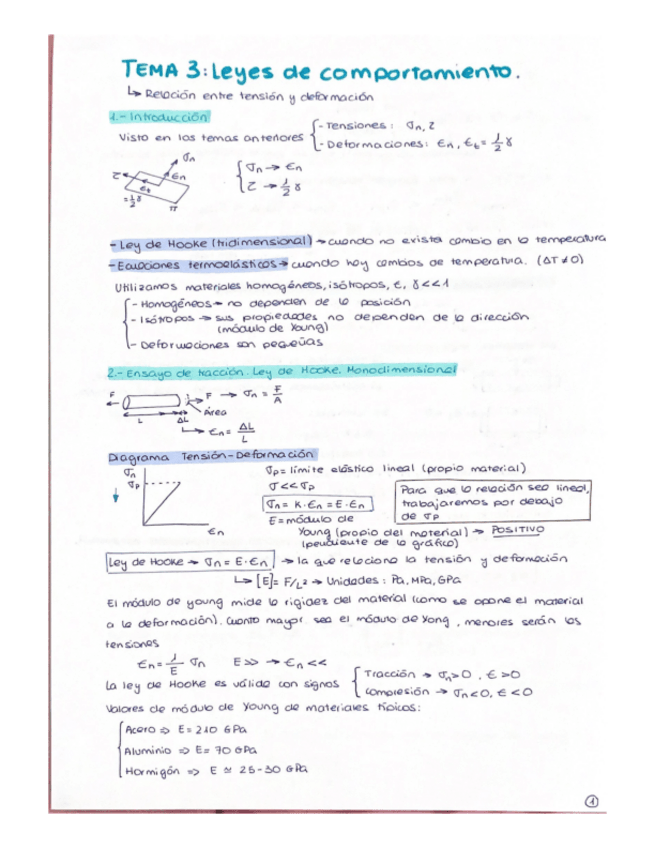 TEMA 3: Leyes de comportamiento.
↳ Relación entre tensión y deformación
1.- Introducción
Visto en los temas anteriores { - Tensiones: σn, τ
- Deformaciones: εn, εt = 1/2 γ
σn
τ εn
εt
= 1/2 γ
π
{ σn → εn
τ → 1/2 γ
- Ley de Hooke (tridimensional) → cuando no exista cambio en la temperatura
- Ecuaciones termoelásticas → cuando hay cambios de temperatura. (ΔT ≠ 0)
Utilizamos materiales homogéneos, isótropos, ε, γ <<1
{ - Homogéneos → no dependen de la posición
- Isótropos → sus propiedades no dependen de la dirección
(módulo de Young)
- Deformaciones son pequeñas
2.- Ensayo de tracción. Ley de Hooke. Monodimensional
F F → σn = F/A
Área
L ΔL
↳ εn = ΔL/L
Diagrama Tensión-Deformación
σn
σp
εn
σp = límite elástico lineal (propio material)
σ << σp
σn = K · εn = E · εn
Para que la relación sea lineal,
trabajaremos por debajo
de σp
E = módulo de
Young (propio del material) → POSITIVO
(pendiente de la gráfica)
Ley de Hooke → σn = E · εn → la que relaciona la tensión y deformación
↳ [E] = F/L² → Unidades: Pa, MPa, GPa
El módulo de young mide la rigidez del material (como se opone el material
a la deformación). Cuanto mayor sea el módulo de Yong, menores serán las
tensiones
εn = 1/E σn E>> → εn <<
La ley de Hooke es válida con signos { Tracción → σn>0, ε>0
Compresión → σn<0, ε<0
Valores de módulo de Young de materiales típicos:
{ Acero ⇒ E = 210 GPa
Aluminio ⇒ E = 70 GPa
Hormigón ⇒ E ≃ 25-30 GPa
1